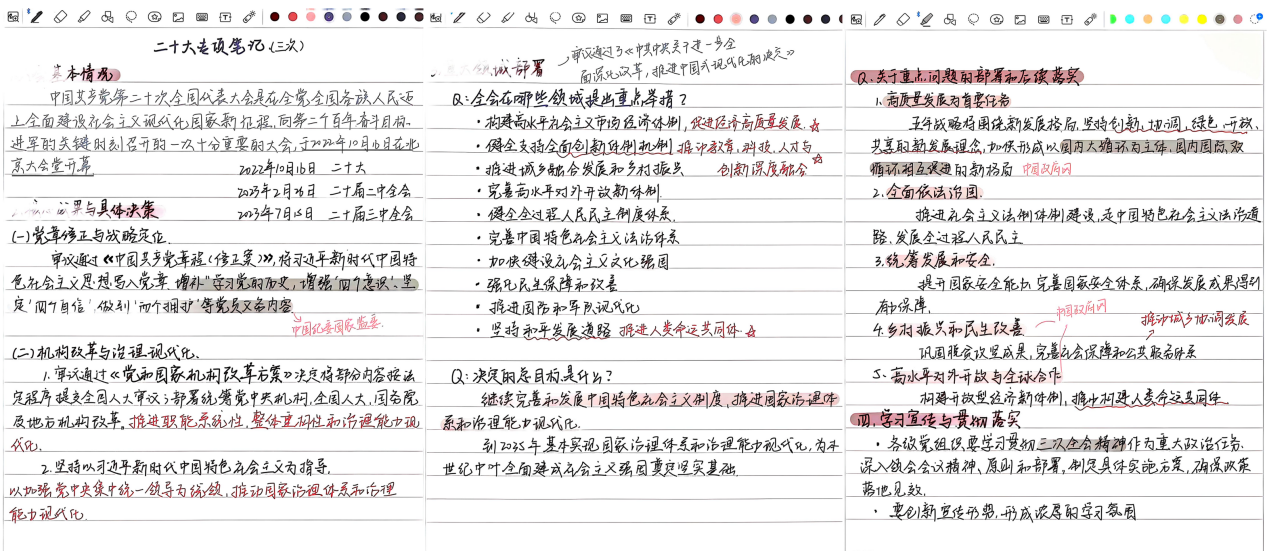 二十大专项笔记(三次)
基本情况
中国共产党第二十次全国代表大会是在全党全国各族人民迈
上全面建设社会主义现代化国家新征程,向第二个百年奋斗目标
进军的关键时刻召开的一次十分重要的大会,于2022年10月16日在北
京大会堂开幕
2022年10月16日 二十大
2023年2月26日 二十届二中全会
果与具体决策
2023年7月15日 二十届三中全会
(一)党章修正与战略定位.
审议通过《中国共产党章程(修正案)》,将习近平新时代中国特
色社会主义思想写入党章,增补"学习党的历史,增强'四个意识'、坚
定'四个自信',做到'两个拥护'等党员义务内容
中国纪委国家监委.
(二)机构改革与治理现代化、
1.审议通过《党和国家机构改革方案》决定将部分内容按法
定程序提交全国人大审议;部署统筹党中央机构,全国人大,国务院
及地方机构改革。推进职能系统性,整体重构性和治理能力现
代化.
2.坚持以习近平新时代中国特色社会主义为指导,
以加强党中央集中统一领导为统领,推动国家治理体系和治理
能力现代化.
领域部署
审议通过了《中共中央关于进一步全
面深化改革,推进中国式现代化的决定》
Q:全会在哪些领域提出重点举措?
·构建高水平社会主义市场经济体制,促进经济高质量发展.☆
·健全支持全面创新体制机制 推动教育,科技,人才与
·推进城乡融合发展和乡村振兴 创新深度融合☆
·完善高水平对外开放新体制.
·健全全过程人民民主制度体系.
·完善中国特色社会主义法治体系
·加快建设社会主义文化强国
·强化民生保障和改善
·推进国防和军队现代化
·坚持和平发展道路 推进人类命运共同体☆
Q:决定的总目标是什么?
继续完善和发展中国特色社会主义制度,推进国家治理体
系和治理能力现代化.
到2035年基本实现国家治理体系和治理能力现代化,为本
世纪中叶全面建成社会主义强国奠定坚实基础.
Q.关于重点问题的部署和后续落实
1.高质量发展为首要任务
五年战略将围绕新发展格局,坚持创新、协调、绿色、开放、
共享的新发展理念,加快形成以国内大循环为主体,国内国际双
循环相互促进的新格局 中国政府网
2.全面依法治国.
推进社会主义法制体制建设,走中国特色社会主义法治道
路,发展全过程人民民主
3.统筹发展和安全.
提升国家安全能力,完善国家安全体系,确保发展成果得到
有力保障.
中国政府网
4.乡村振兴和民生改善
推动城乡协调发展
巩固脱贫攻坚成果,完善社会保障和公共服务体系
5.高水平对外开放与全球合作
构建开放型经济新体制,推动构建人类命运共同体
四.学习宣传与贯彻落实
·各级党组织要学习贯彻三次全会精神作为重大政治任务.
深入领会会议精神、原则和部署,制定具体实施方案,确保政策
落地见效.
·要创新宣传形势,形成浓厚的学习氛围